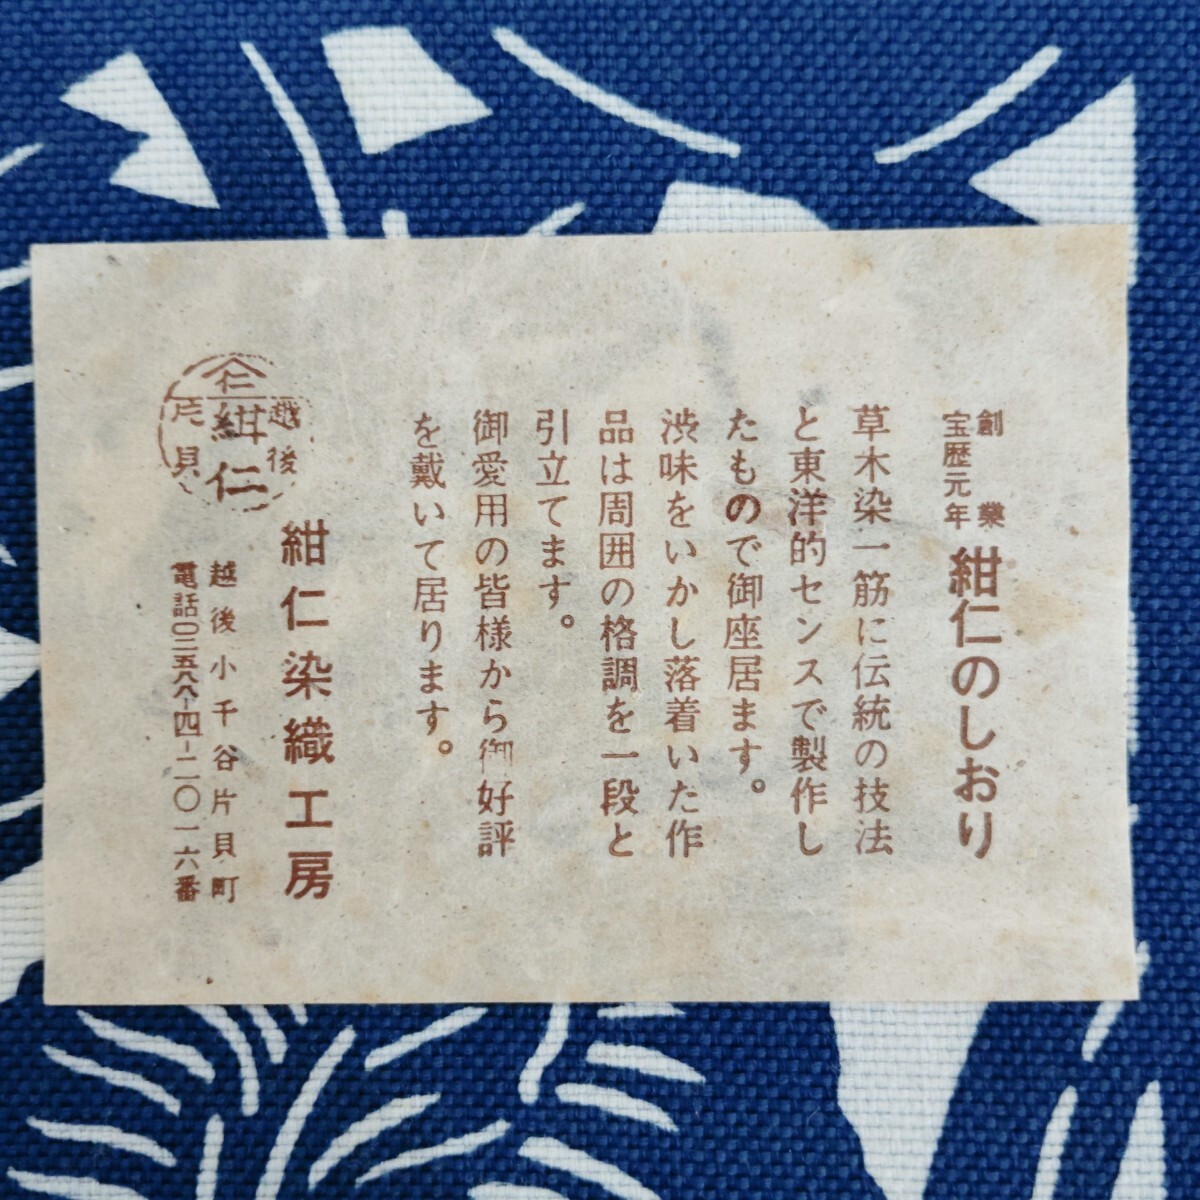 創業
宝歴元年
紺仁のしおり
草木染一筋に伝統の技法
と東洋的センスで製作し
たもので御座居ます。
渋味をいかし落着いた作
品は周囲の格調を一段と
引立てます。
御愛用の皆様から御好評
を戴いて居ります。
紺仁染織工房
越後小千谷片貝町
電話〇二五八八-四-二〇一六番
仁
越後
紺仁
片貝